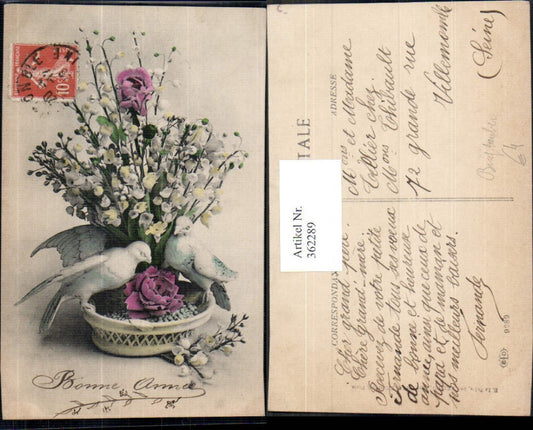 10
Bonne Année
CARTE POSTALE
CORRESPONDANCE
ADRESSE
Artikel Nr.
362289
Cher grand père.
Chère grand-mère.
Recevez de votre petite
Fernande tous ses vœux
de bonne et heureuse
année, ainsi que ceux de
papa et de maman et
nos meilleurs baisers.
Fernande
Mons et Madame
Tellier chez
Mons Thibault
72 grande rue
Villemomble
(Seine)
64